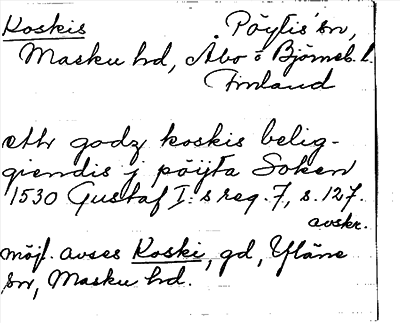 Koskis Pöytis sn,
Masku hd, Åbo o Björneb. l.
Finland
ethr godz koskis belig-
giendis j pöijta Soken
1530 Gustaf I:s reg. 7, s. 127.
avskr.
möjl. avses Koski, gd, Yläne
sn, Masku hd.